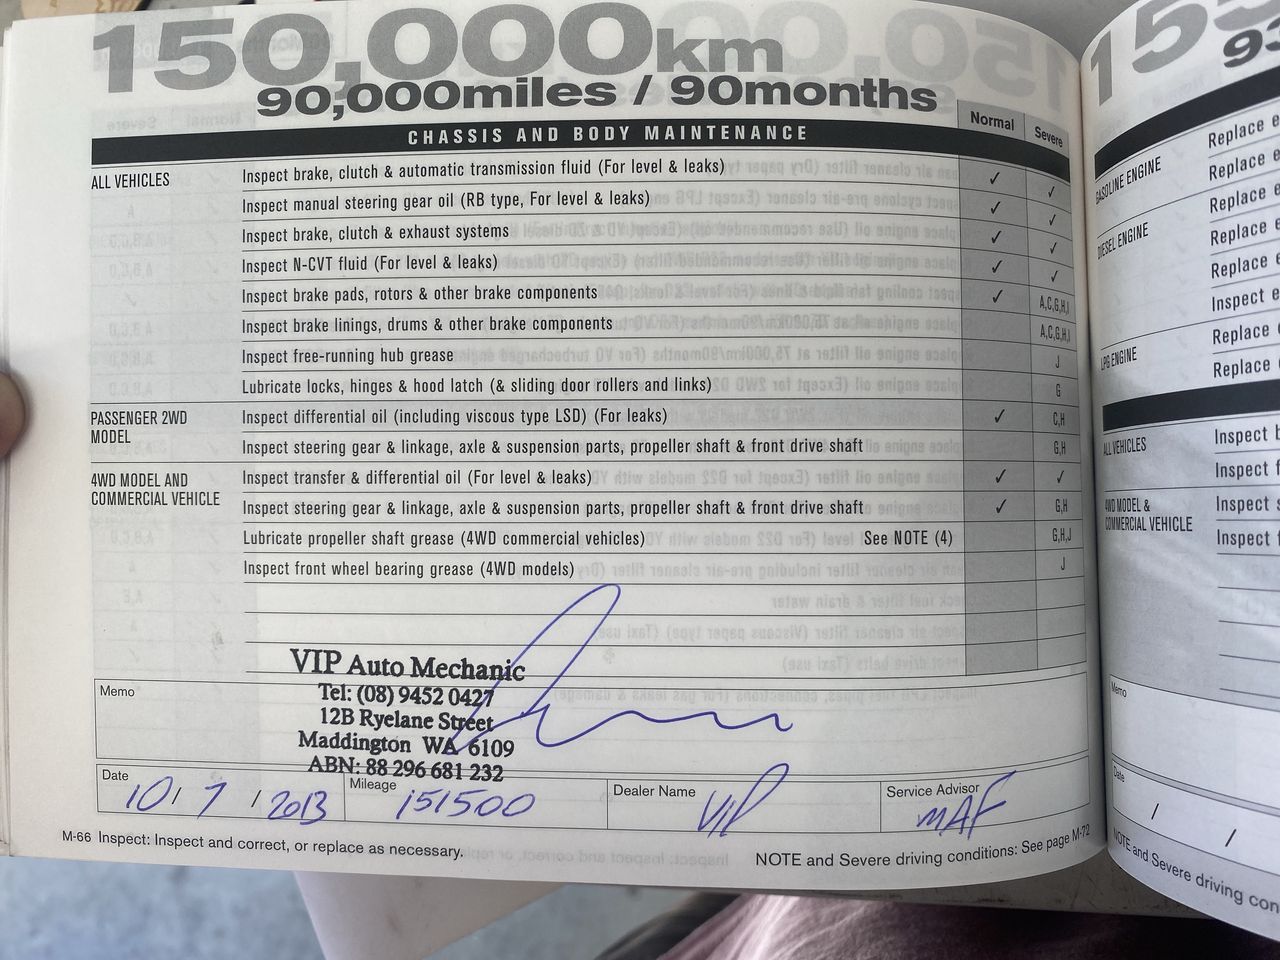 150,000km
90,000miles / 90months
CHASSIS AND BODY MAINTENANCE Normal Severe
ALL VEHICLES Inspect brake, clutch & automatic transmission fluid (For level & leaks) ✓ ✓
Inspect manual steering gear oil (RB type, For level & leaks) ✓ ✓
Inspect brake, clutch & exhaust systems ✓ ✓
Inspect N-CVT fluid (For level & leaks) ✓ ✓
Inspect brake pads, rotors & other brake components ✓ A,C,G,H,I
Inspect brake linings, drums & other brake components A,C,G,H,I
Inspect free-running hub grease J
Lubricate locks, hinges & hood latch (& sliding door rollers and links) G
PASSENGER 2WD MODEL Inspect differential oil (including viscous type LSD) (For leaks) ✓ C,H
Inspect steering gear & linkage, axle & suspension parts, propeller shaft & front drive shaft G,H
4WD MODEL AND COMMERCIAL VEHICLE Inspect transfer & differential oil (For level & leaks) ✓ ✓
Inspect steering gear & linkage, axle & suspension parts, propeller shaft & front drive shaft ✓ G,H
Lubricate propeller shaft grease (4WD commercial vehicles) See NOTE (4) G,H,J
Inspect front wheel bearing grease (4WD models) J
VIP Auto Mechanic
Tel: (08) 9452 0427
12B Ryelane Street
Maddington WA 6109
ABN: 88 296 681 232
Memo
Date 10/7/2013 Mileage 151500 Dealer Name VIP Service Advisor MAF
M-66 Inspect: Inspect and correct, or replace as necessary. NOTE and Severe driving conditions: See page M-72
GASOLINE ENGINE Replace
Replace
DIESEL ENGINE Replace
Replace
Replace
Inspect
LPG ENGINE Replace
Replace
ALL VEHICLES Inspect
Inspect
4WD MODEL & COMMERCIAL VEHICLE Inspect
Inspect
Memo
Date / /
NOTE and Severe driving